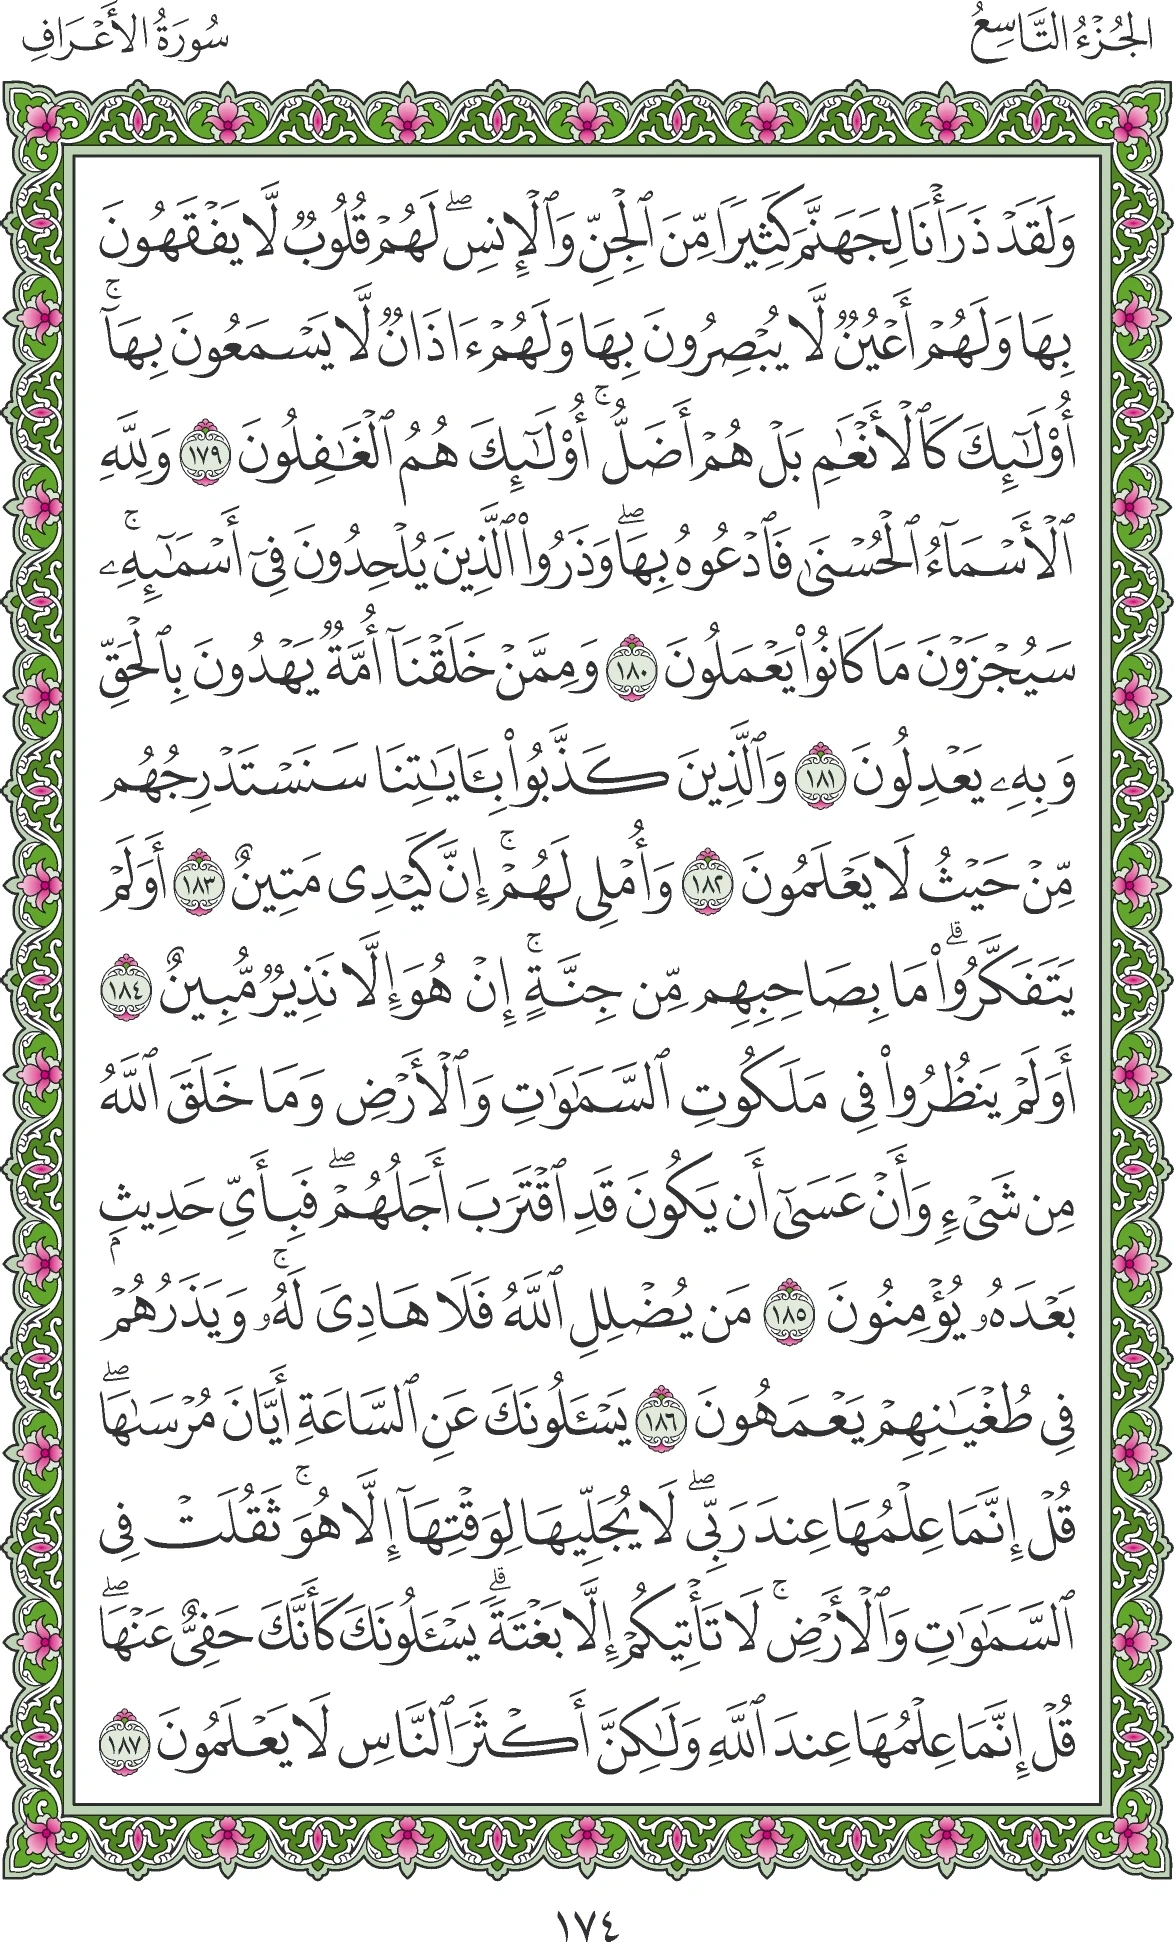 الجُزْءُ التَّاسِعُ
سُورَةُ الأَعْرَافِ
وَلَقَدْ ذَرَأْنَا لِجَهَنَّمَ كَثِيرًا مِّنَ ٱلْجِنِّ وَٱلْإِنسِ ۖ لَهُمْ قُلُوبٌ لَّا يَفْقَهُونَ
بِهَا وَلَهُمْ أَعْيُنٌ لَّا يُبْصِرُونَ بِهَا وَلَهُمْ ءَاذَانٌ لَّا يَسْمَعُونَ بِهَآ ۚ
أُو۟لَٰٓئِكَ كَٱلْأَنْعَٰمِ بَلْ هُمْ أَضَلُّ ۚ أُو۟لَٰٓئِكَ هُمُ ٱلْغَٰفِلُونَ ١٧٩ وَلِلَّهِ
ٱلْأَسْمَآءُ ٱلْحُسْنَىٰ فَٱدْعُوهُ بِهَا ۖ وَذَرُوا۟ ٱلَّذِينَ يُلْحِدُونَ فِىٓ أَسْمَٰٓئِهِۦ ۚ
سَيُجْزَوْنَ مَا كَانُوا۟ يَعْمَلُونَ ١٨٠ وَمِمَّنْ خَلَقْنَآ أُمَّةٌ يَهْدُونَ بِٱلْحَقِّ
وَبِهِۦ يَعْدِلُونَ ١٨١ وَٱلَّذِينَ كَذَّبُوا۟ بِـَٔايَٰتِنَا سَنَسْتَدْرِجُهُم
مِّنْ حَيْثُ لَا يَعْلَمُونَ ١٨٢ وَأُمْلِى لَهُمْ ۚ إِنَّ كَيْدِى مَتِينٌ ١٨٣ أَوَلَمْ
يَتَفَكَّرُوا۟ ۗ مَا بِصَاحِبِهِم مِّن جِنَّةٍ ۚ إِنْ هُوَ إِلَّا نَذِيرٌ مُّبِينٌ ١٨٤
أَوَلَمْ يَنظُرُوا۟ فِى مَلَكُوتِ ٱلسَّمَٰوَٰتِ وَٱلْأَرْضِ وَمَا خَلَقَ ٱللَّهُ
مِن شَىْءٍ وَأَنْ عَسَىٰٓ أَن يَكُونَ قَدِ ٱقْتَرَبَ أَجَلُهُمْ ۖ فَبِأَىِّ حَدِيثٍۭ
بَعْدَهُۥ يُؤْمِنُونَ ١٨٥ مَن يُضْلِلِ ٱللَّهُ فَلَا هَادِىَ لَهُۥ ۚ وَيَذَرُهُمْ
فِى طُغْيَٰنِهِمْ يَعْمَهُونَ ١٨٦ يَسْـَٔلُونَكَ عَنِ ٱلسَّاعَةِ أَيَّانَ مُرْسَىٰهَا ۖ
قُلْ إِنَّمَا عِلْمُهَا عِندَ رَبِّى ۖ لَا يُجَلِّيهَا لِوَقْتِهَآ إِلَّا هُوَ ۚ ثَقُلَتْ فِى
ٱلسَّمَٰوَٰتِ وَٱلْأَرْضِ ۚ لَا تَأْتِيكُمْ إِلَّا بَغْتَةً ۗ يَسْـَٔلُونَكَ كَأَنَّكَ حَفِىٌّ عَنْهَا ۖ
قُلْ إِنَّمَا عِلْمُهَا عِندَ ٱللَّهِ وَلَٰكِنَّ أَكْثَرَ ٱلنَّاسِ لَا يَعْلَمُونَ ١٨٧
١٧٤